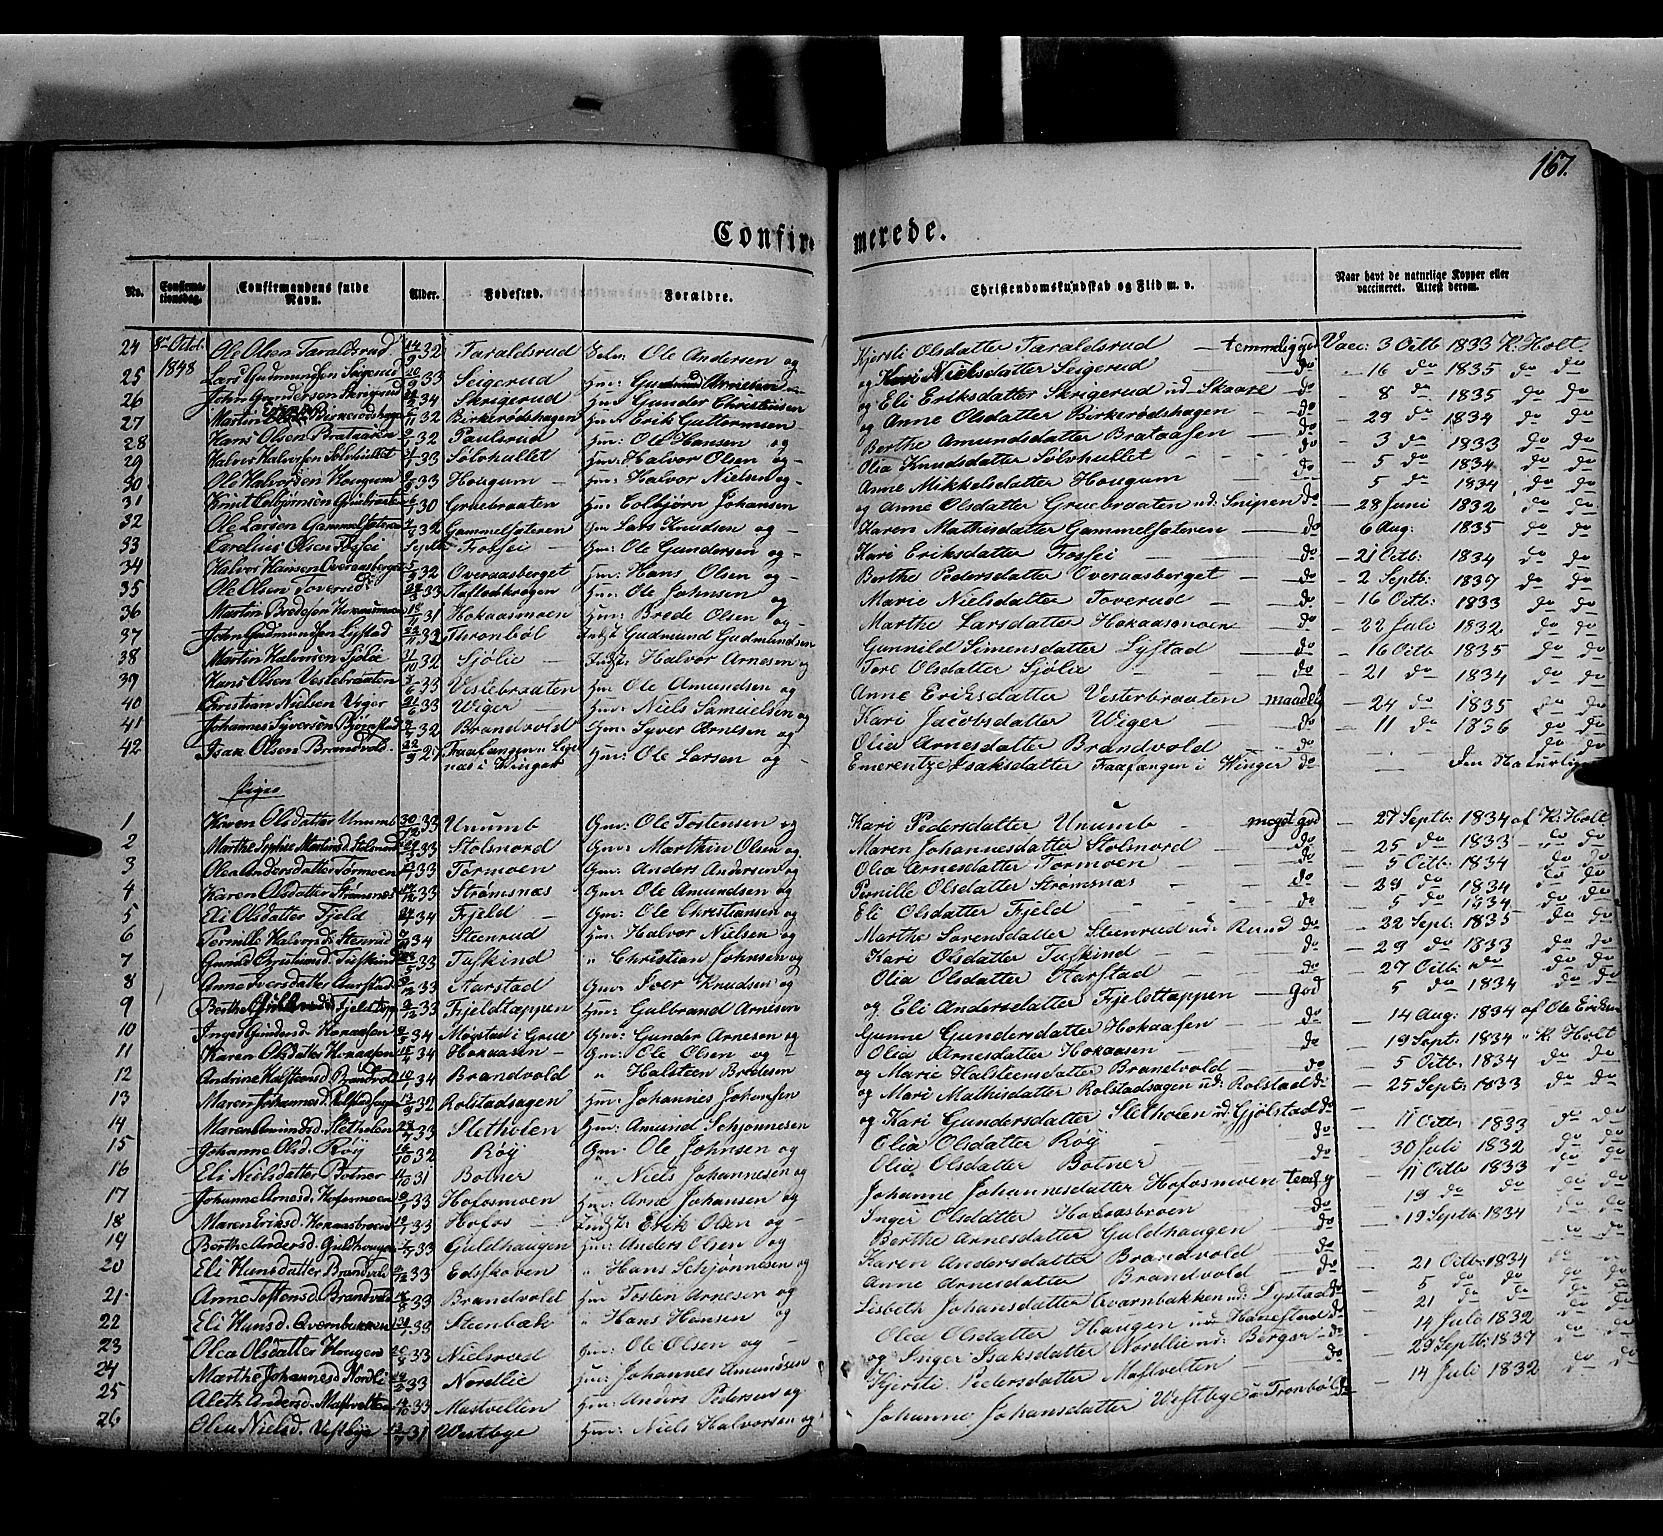 167.
Confirmerede.
No. Confirmationsdag. Confirmandens fulde Navn. Alder. Fødested. Forældre. Christendomskundskab og Flid m. v. Naar havt de naturlige Kopper eller vaccineret. Attest derom.
24 8de Octbr. 1848 Ole Olsen Taraldsrud 14/9 32 Taraldsrud Ole Andersen og Kjersti Olsdatter Taraldsrud — temmelig god Vacc: 3 Octb 1833 K: Holt
25 Lars Gudmundsen Seigerud 33 Seigerud Gm: Gudmund Arnesen og Kari Nielsdatter Seigerud — do — 16 do 1835 do do
26 John Gundersen Skrigerud 34 Skrigerud Gunder Christensen og Eli Eriksdatter Skrigerud ud: Skaare do — 8 do 1835 do do
27 Martin Birkerødshagen 32 Birkerødshagen Erik Guttormsen og Anne Olsdatter Birkerødshagen — do — 29 do 1834 do do
28 Hans Olsen Brataasen 32 Paulsrud Ole Hansen og Berthe Amundsdatter Brataasen — do — 3 do 1833 do do
29 Halvor Halvorsen Sølvhullet 33 Sølvhullet Halvor Olsen og Olia Knudsdatter Sølvhullet do — 5 do 1834 do do
30 Ole Halvorsen Hougum 33 Hougum Halvor Nielsen og Anne Mikkelsdatter Hougum — do — 5 do 1834 do do
31 Knut Colbjørnsen Gruebraaten 30 Gruebraaten Colbjørn Johansen og Anne Olsdatter Gruebraaten ud: Snipen do — 28 Juni 1832 do do
32 Ole Larsen Gammelsæteren 32 Gammelsæteren Lars Knudsen og Karen Mathisdatter Gammelsæteren — do — 6 Aug: 1835 do do
33 Carelius Olsen Fossei Septb Fossei Ole Gundersen og Kari Eriksdatter Fossei — do — 21 Octb: 1834 do do
34 Halvor Hansen Overaasberget 32 Overaasberget Hans Olsen og Berthe Pedersdatter Overaasberget — do — 2 Septb: 1837 do do
35 Ole Olsen Toverud 33 Ole Johnsen og Marie Nielsdatter Toverud — do — 16 Octb: 1833 do do
36 Martin Bredesen Hokaasmoen 31 Hokaasmoen Brede Olsen og Marthe Larsdatter Hokaasmoen do — 22 Juli 1832 do do
37 John Gudmundsen Lystad 32 Thronbøl Gudmund Gudmundsen Gunnild Simensdatter Lystad — do — 16 Octb 1835 do do
38 Martin Halvorsen Sjølie 32 Sjølie — Halvor Arnesen og Tore Olsdatter Sjølie — do — 21 do 1834 do do
39 Hans Olsen Vestebraaten 33 Vestebraaten Ole Amundsen og Anne Eriksdatter Vesterbraaten — maadelig — 24 do 1835 do do
40 Christian Nielsen Viger 33 Wiger — Niels Samuelsen og Kari Jacobsdatter Wiger — do — 11 do 1836 do do
41 Johannes Syversen Bjørnstad 32 Brandvold Syver Arnesen og Olia Arnesdatter Brandvold — do do do
42 Isak Olsen Brandvold 27 Faafangen i Winger Ole Larsen og Emerentze Isaksdatter Faafangen i Winger do Den Naturlige
Piger
1 Karen Olsdatter Unumb 33 Unumb Gm: Ole Tostensen og Kari Pedersdatter Unumb — meget god — 27 Septb: 1834 af K: Holt
2 Marthe Sophie Martinsd Stolmord 33 Stolsnord Gm: Marthin Olsen og Maren Johannesdatter Stolsnord do — 25 do 1833 do do
3 Olea Andersdatter Tormoen 33 Tormoen Gm: Anders Andersen og Olia Arnesdatter Tormoen — do — 5 Octb: 1834 do do
4 Karen Olsdatter Strømsnæs 33 Strømsnæs Gm: Ole Amundsen og Pernille Olsdatter Strømsnæs — do — 29 do 1834 do do
5 Eli Olsdatter Fjeld 34 Fjeld — Gm: Ole Christiansen og Eli Olsdatter Fjeld do — 5 do 1934 do do
6 Pernille Halvorsd: Stenrud 34 Steenrud Halvor Nielsen og Marthe Sørensdatter Steenrud ud: Rund do — 22 Sept: 1835 do do
7 33 Tuskind " Christian Johnsen og Kari Olsdatter Tuskind do — 29 do 1833 do do
8 Anne Iversdatter Aarstad 33 Aarstad Gm: Iver Knudsen og Olia Olsdatter Aarstad — do — 27 Octb: do do do
9 Berthe Fjeldtap 33 Fjeldtappen Gulbrand Arnesen og Eli Andersdatter Fjeldtappen — god — 5 do 1834 do do
10 Inger Gundersd: Hokaasen 34 Møistad i Grue Gm: Gunder Arnesen og Gunne Gundersdatter Hokaasen — do — 14 Aug: 1834 af Ole Eriksen
11 Karen Olsdatter Hokaasen 34 Hokaasen — Gm: Ole Olsen og — Olia Arnesdatter Hokaasen — do — 19 Septb: 1834 " K: Holt
12 Andrine Halsteensd: Brandvold 34 Brandvold " Halsteen Bredesen og Marie Halsteensdatter Brandvold — do — 5 Octb: 1834 do do
13 Maren Johannesd. Rolstadsagen 32 Rolstadsagen Johannes Johansen og Mari Mathisdatter Rolstadsagen ud: Rolstad do — 25 Septb: 1833 do do
14 Maren Amundsd: Sletholen 33 Sletholen Amund Schjønnesen og Kari Gundersdatter Sletholen ud: Gjølstad do — 11 Octb: 1833 do do
15 Johanne Olsd. Røy 32 Røy Gm: Ole Johnsen og Olia Olsdatter Røy — do — 30 Juli 1832 do do
16 Eli Nielsdatter Botner 31 Botner " Niels Johannesen og Olia Olsdatter Botner — do — 11 Octb: 1833 do do
17 Johanne Arnesd. Hofosmoen 33 Hofosmoen Arne Johansen og Johanne Johannesdatter Hofosmoen — 19 do do do do
18 Maren Eriksd. Hokaasbroen 33 Hofos — Erik Olsen og — Inger Olsdatter Hokaasbroen do — 19 Septb: 1834 do do
19 Berthe Andersd. Guldhaugen 33 Guldhaugen Anders Olsen og Berthe Arnesdatter Guldhaugen do do do
20 Eli Hansdatter Brandvold 33 Edskoven " Hans Schjønnesen og Karen Andersdatter Brandvold — do — 21 Octb: 1834 do do
21 Anne Tostensd. Brandvold 33 Brandvold Tosten Arnesen og Anne Arnesdatter Brandvold — do — 5 do do do do
22 Eli Hansd. Qvernbakken 33 Steenbæk " Hans Hansen og Lisbeth Johansdatter Qvarnbakken ud: Lystad do — 21 do do do do
23 Olea Olsdatter Haugen 33 Nielsrud Ole Olsen og — Olia Olsdatter Haugen ud: do — 14 Juli 1832 do do
24 Marthe Johannesd Nordli 33 Nordlie Johannes Amundsen og Inger Isaksdatter Nordlie ud: Berger — do — 29 Septb: 1837 do do
25 Aleth Andersd. Mastvelten 33 Mastvelten Anders Pedersen og Kjersti Pedersdatter Mastvelten do — 14 Juli 1832 do do
26 Olea Nielsd. Vestbye 31 Westbye Niels Halvorsen og Johanne Johansdatter Westbye u: Tronbøl do